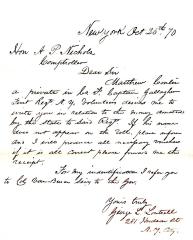 New York Oct 25th 70
Hon A. P. Nichols
Comptroller
Dear Sir
Matthew
a private in Co. F Captain Gallagher
First Regt N. Y. Volunteers desires me to
write you in relation to the money awarded
by the State to said Regt. If his name
does not appear on the Roll, please inform
me I will produce all necessary vouchers
if it is all correct please furnish me the
receipt.
For my identification I refer you
to Col
Yours truly
George L.
281 Hudson St
N. Y. City